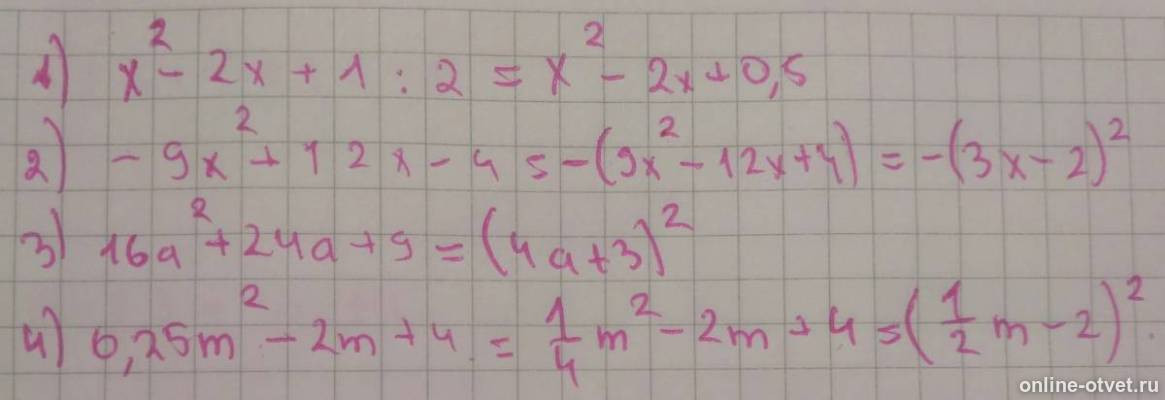 1) x² - 2x + 1 : 2 = x² - 2x + 0,5
2) - 9x² + 12x - 4 = -(9x² - 12x + 4) = -(3x - 2)²
3) 16a² + 24a + 9 = (4a + 3)²
4) 0,25m² - 2m + 4 = 1/4 m² - 2m + 4 = (1/2 m - 2)².
online-otvet.ru